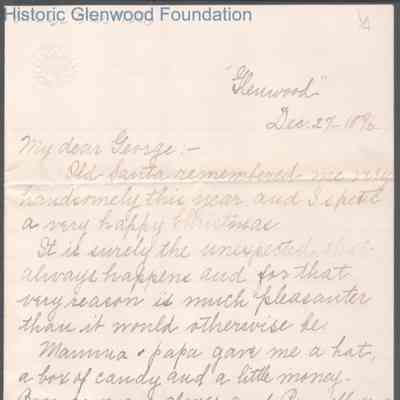 Historic Glenwood Foundation
"Glenwood"
Dec. 27 - 1896
My dear George:-
Old Santa remembered me very
handsomely this year and I spent
a very happy Christmas.
It is surely the unexpected that
always happens and for that
very reason is much pleasanter
than it would otherwise be.
Mamma & papa gave me a hat,
a box of candy and a little money.